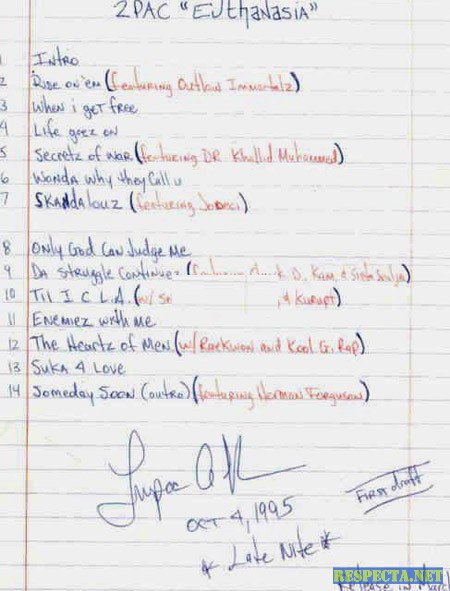 2PAC "Euthanasia"
1 Intro
2 Ride on 'em (featuring Outlaw Immortalz)
3 When i get free
4 Life goez on
5 Secretz of war (featuring DR Khallid Muhammed)
6 Wonda why they call u
7 SKANdalouz (featuring Jodeci)
8 Only God Can Judge Me
9 Da Struggle Continuez O, Kam, & Sista Soulja
10 Til I C L.A. (w/ , & Kurupt)
11 Enemiez with me
12 The Heartz of Men (w/ Raekwon and Kool G. Rap)
13 Suka 4 Love
14 Someday Soon (outro) (featuring Norman Ferguson)
OCT 4, 1995
First draft
* Late Nite *
RESPECTA.NET
Release in March